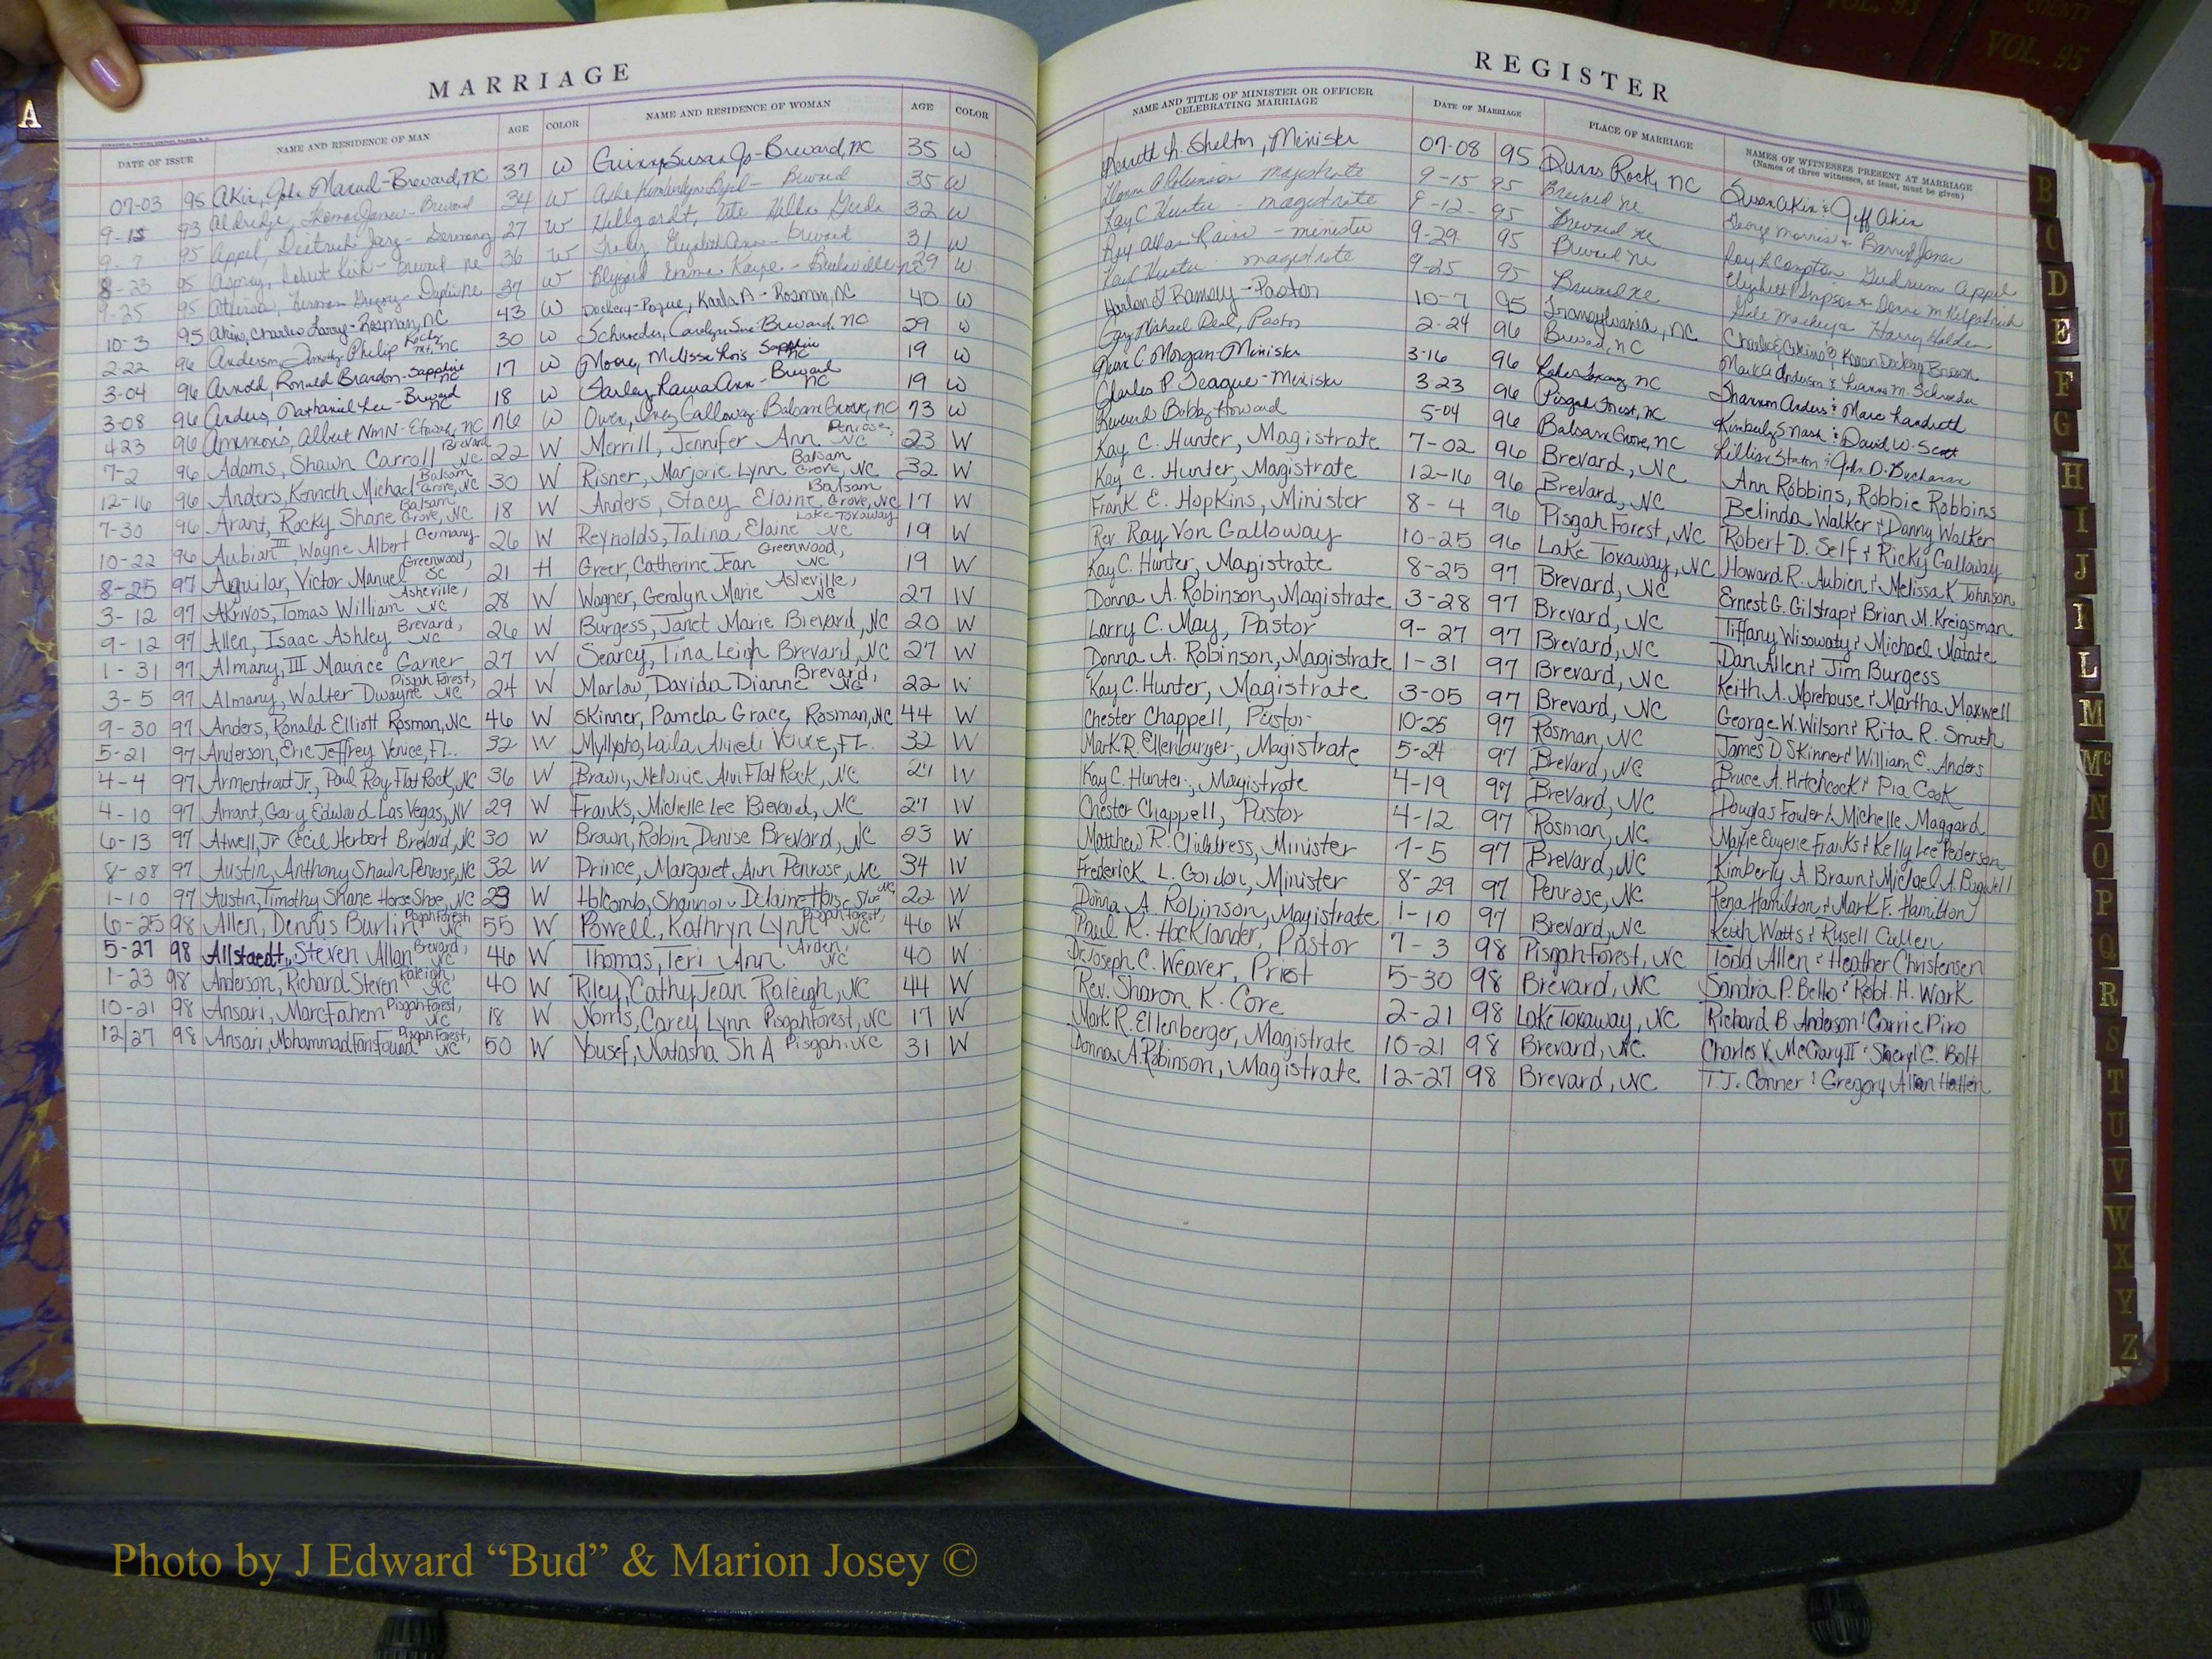 VOL. 93
COUNTY
VOL. 95
A
MARRIAGE
REGISTER
DATE OF ISSUE NAME AND RESIDENCE OF MAN AGE COLOR NAME AND RESIDENCE OF WOMAN AGE COLOR NAME AND TITLE OF MINISTER OR OFFICER CELEBRATING MARRIAGE DATE OF MARRIAGE PLACE OF MARRIAGE NAMES OF WITNESSES PRESENT AT MARRIAGE (Names of three witnesses, at least, must be given)
07-03 95 Akin, John - Brevard, NC 37 W Susan Jo - Brevard, NC 35 W Kenneth A. Shelton, Minister 07-08 95 Dunns Rock, NC Susan Akin & Jeff Akin
9-15 93 Aldridge, - Brevard 34 W - Brevard 35 W Donna A Robinson magistrate 9-15 95 Brevard NC George Morris &
9-7 95 Appel, - Germany 27 W 32 W Kay C Hunter - magistrate 9-12- 95 Brevard NC Roy L Compton Gudrun Appel
8-23 95 Robert Kirk - Brevard NC 36 W Elizabeth Ann - Brevard 31 W - minister 9-29 95 Brevard NC
9-25 95 37 W Emma Kaye - NC 29 W Kay Hunter magistrate 9-25 95 Brevard NC Harry Holden
10-3 95 Akins, Charles Larry - Rosman, NC 43 W Dockery-Pogue, Karla A - Rosman, NC 40 W Harlon Ramsey - Pastor 10-7 95 Transylvania, NC
2-22 96 Anderson, Timothy Philip Rocky Mt, NC 30 W Schroeder, Carolyn Sue - Brevard, NC 29 W Gary Michael Deal, Pastor 2-24 96 Brevard, NC Mark A Anderson & M. Schroeder
3-04 96 Arnold, Ronald Brandon - Sapphire NC 17 W Moore, Melissa Lois Sapphire NC 19 W C Morgan - Minister 3-16 96 Lake Toxaway, NC Shannon Anders & Marc Landreth
3-08 96 Anders, Nathaniel Lee - Brevard NC 18 W Farley, Laura Ann - Brevard NC 19 W Charles P. Teague - Minister 3 23 96 Pisgah Forest, NC Kimberly S Nash & David W. Scott
4 23 96 Ammons, Albert NMN - NC 76 W Owen, Galloway - Balsam Grove, NC 73 W Bobby Howard 5-04 96 Balsam Grove, NC Lillian Staton & John D. Buchanan
7-2 96 Adams, Shawn Carroll Brevard NC 22 W Merrill, Jennifer Ann Penrose, NC 23 W Kay C. Hunter, Magistrate 7-02 96 Brevard, NC Ann Robbins, Robbie Robbins
12-16 96 Anders, Kenneth Michael Balsam Grove, NC 30 W Risner, Marjorie Lynn Balsam Grove, NC 32 W Kay C. Hunter, Magistrate 12-16 96 Brevard, NC Belinda Walker & Danny Walker
7-30 96 Arant, Rocky Shane Balsam Grove, NC 18 W Anders, Stacy Elaine Balsam Grove, NC 17 W Frank E. Hopkins, Minister 8-4 96 Pisgah Forest, NC Robert D. Self & Ricky Galloway
10-22 96 Aubian III, Wayne Albert Germany 26 W Reynolds, Talina Elaine Lake Toxaway NC 19 W Rev Ray Von Galloway 10-25 96 Lake Toxaway, NC Howard R. Aubien & Melissa K Johnson
8-25 97 Aguilar, Victor Manuel Greenwood, SC 21 H Greer, Catherine Jean Greenwood, NC 19 W Kay C. Hunter, Magistrate 8-25 97 Brevard, NC Ernest G. Gilstrap & Brian M. Kreigsman
3-12 97 Akrivos, Tomas William Asheville, NC 28 W Wagner, Geralyn Marie Asheville, NC 27 W Donna A. Robinson, Magistrate 3-28 97 Brevard, NC Tiffany Wisowaty & Michael Matate
9-12 97 Allen, Isaac Ashley Brevard, NC 26 W Burgess, Janet Marie Brevard, NC 20 W Larry C. May, Pastor 9-27 97 Brevard, NC Dan Allen & Jim Burgess
1-31 97 Almany, III Maurice Garner 27 W Searcy, Tina Leigh Brevard, NC 27 W Donna A. Robinson, Magistrate 1-31 97 Brevard, NC Keith A. Morehouse & Martha Maxwell
3-5 97 Almany, Walter Dwayne Pisgah Forest, NC 24 W Marlow, Davida Dianne Brevard, NC 22 W Kay C. Hunter, Magistrate 3-05 97 Brevard, NC George W. Wilson & Rita R. Smith
9-30 97 Anders, Ronald Elliott Rosman, NC 46 W Skinner, Pamela Grace, Rosman, NC 44 W Chester Chappell, Pastor 10-25 97 Rosman, NC James D Skinner & William E. Anders
5-21 97 Anderson, Eric Jeffrey Venice, FL. 32 W Myllyaho, Laila Anneli Venice, FL. 32 W Mark R. Ellenburger, Magistrate 5-24 97 Brevard, NC Bruce A. Hitchcock & Pia Cook
4-4 97 Armentrout Jr., Paul Roy Flat Rock, NC 36 W Brown, Melonie Ann Flat Rock, NC 24 W Kay C. Hunter, Magistrate 4-19 97 Brevard, NC Douglas Fowler & Michelle Maggard
4-10 97 Arrant, Gary Edward Las Vegas, NV 29 W Franks, Michelle Lee Brevard, NC 27 W Chester Chappell, Pastor 4-12 97 Rosman, NC Eugene Franks & Kelly Lee Pederson
6-13 97 Atwell, Jr Cecil Herbert Brevard, NC 30 W Brown, Robin Denise Brevard, NC 23 W Matthew R. Childress, Minister 7-5 97 Brevard, NC Kimberly A Brown & Michael A. Bagwell
8-28 97 Austin, Anthony Shawn Penrose, NC 32 W Prince, Margaret Ann Penrose, NC 34 W Frederick L. Gordon, Minister 8-29 97 Penrose, NC Rena Hamilton & Mark F. Hamilton
1-10 97 Austin, Timothy Shane Horse Shoe, NC 23 W Holcomb, Shannon Delaine Horse Shoe NC 22 W Donna A. Robinson, Magistrate 1-10 97 Brevard, NC Keith Watts & Rusell Cullen
6-25 98 Allen, Dennis Burlin Pisgah Forest, NC 55 W Powell, Kathryn Lynn Pisgah Forest, NC 46 W Paul R. Hocklander, Pastor 7-3 98 Pisgah Forest, NC Todd Allen & Heather Christensen
5-27 98 Allstaedt, Steven Allan Brevard, NC 46 W Thomas, Teri Ann Arden, NC 40 W Dr. Joseph C. Weaver, Priest 5-30 98 Brevard, NC Sandra P. Bello & Robt. H. Work
1-23 98 Anderson, Richard Steven Raleigh, NC 40 W Riley, Cathy Jean Raleigh, NC 44 W Rev. Sharon K. Core 2-21 98 Lake Toxaway, NC Richard B Anderson & Carrie Piro
10-21 98 Ansari, Marc Fahem Pisgah Forest, NC 18 W Norris, Carey Lynn Pisgah Forest, NC 17 W Mark R. Ellenberger, Magistrate 10-21 98 Brevard, NC Charles K McCrary II & Sheryl C. Bolt
12/27 98 Ansari, Mohammad Pisgah Forest, NC 50 W Yousef, Natasha Sh A Pisgah, NC 31 W Donna A Robinson, Magistrate 12-27 98 Brevard, NC T.J. Conner & Gregory Allan Hatten
B
C
D
E
F
G
H
I
J
K
L
M
Mc
N
O
P
Q
R
S
T
U
V
W
X
Y
Z
Photo by J Edward “Bud” & Marion Josey ©